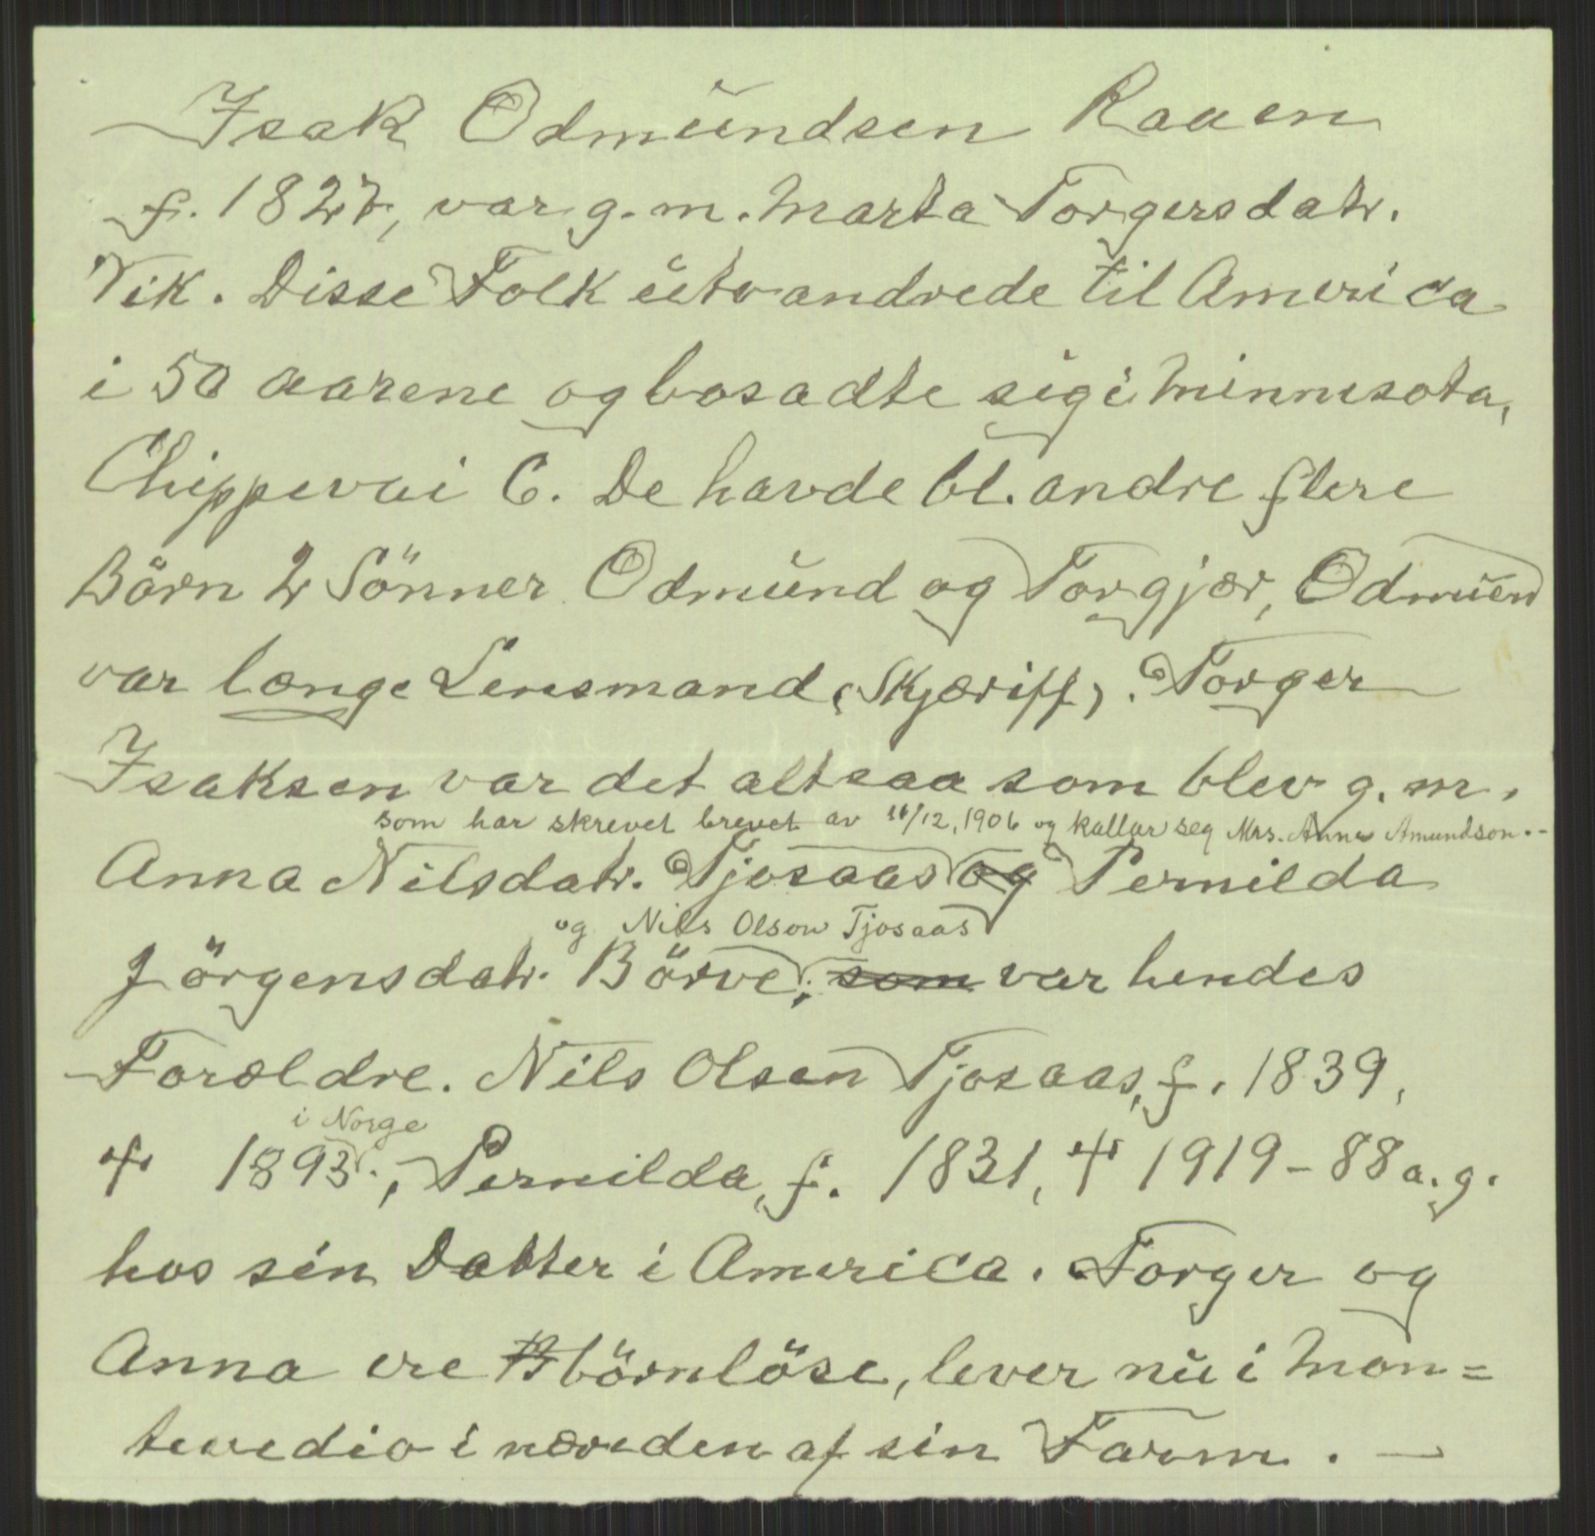 Isak Odmundsen Raaen
f. 1827, var g. m. Marta Torgersdatr.
Vik. Disse Folk utvandrede til America
i 50 aarene og bosadte sig i Minnesota,
Chippevai C. De havde bl. andre flere
Börn 2 Sönner Odmund og Torgjær, Odmun
var længe Lensmand, (Skjæriff). Torger
Isaksen var det altsaa som blev g. m.
som har skrevet brevet av 16/12, 1906 og kallar seg Mrs. Anna Amundson.-
Anna Nilsdatr. Tjosaas og Pernilda
og Nils Olson Tjosaas
Jörgensdatr. Börve, som var hendes
Forældre. Nils Olsen Tjosaas, f. 1839,
i Norge
† 1893., Pernilda, f. 1831, † 1919 - 88 a. g.
hos sin Datter i America. Torger og
Anna ere B börnlöse, lever nu i Mon=
tevedio i næreden af sin Farm. —